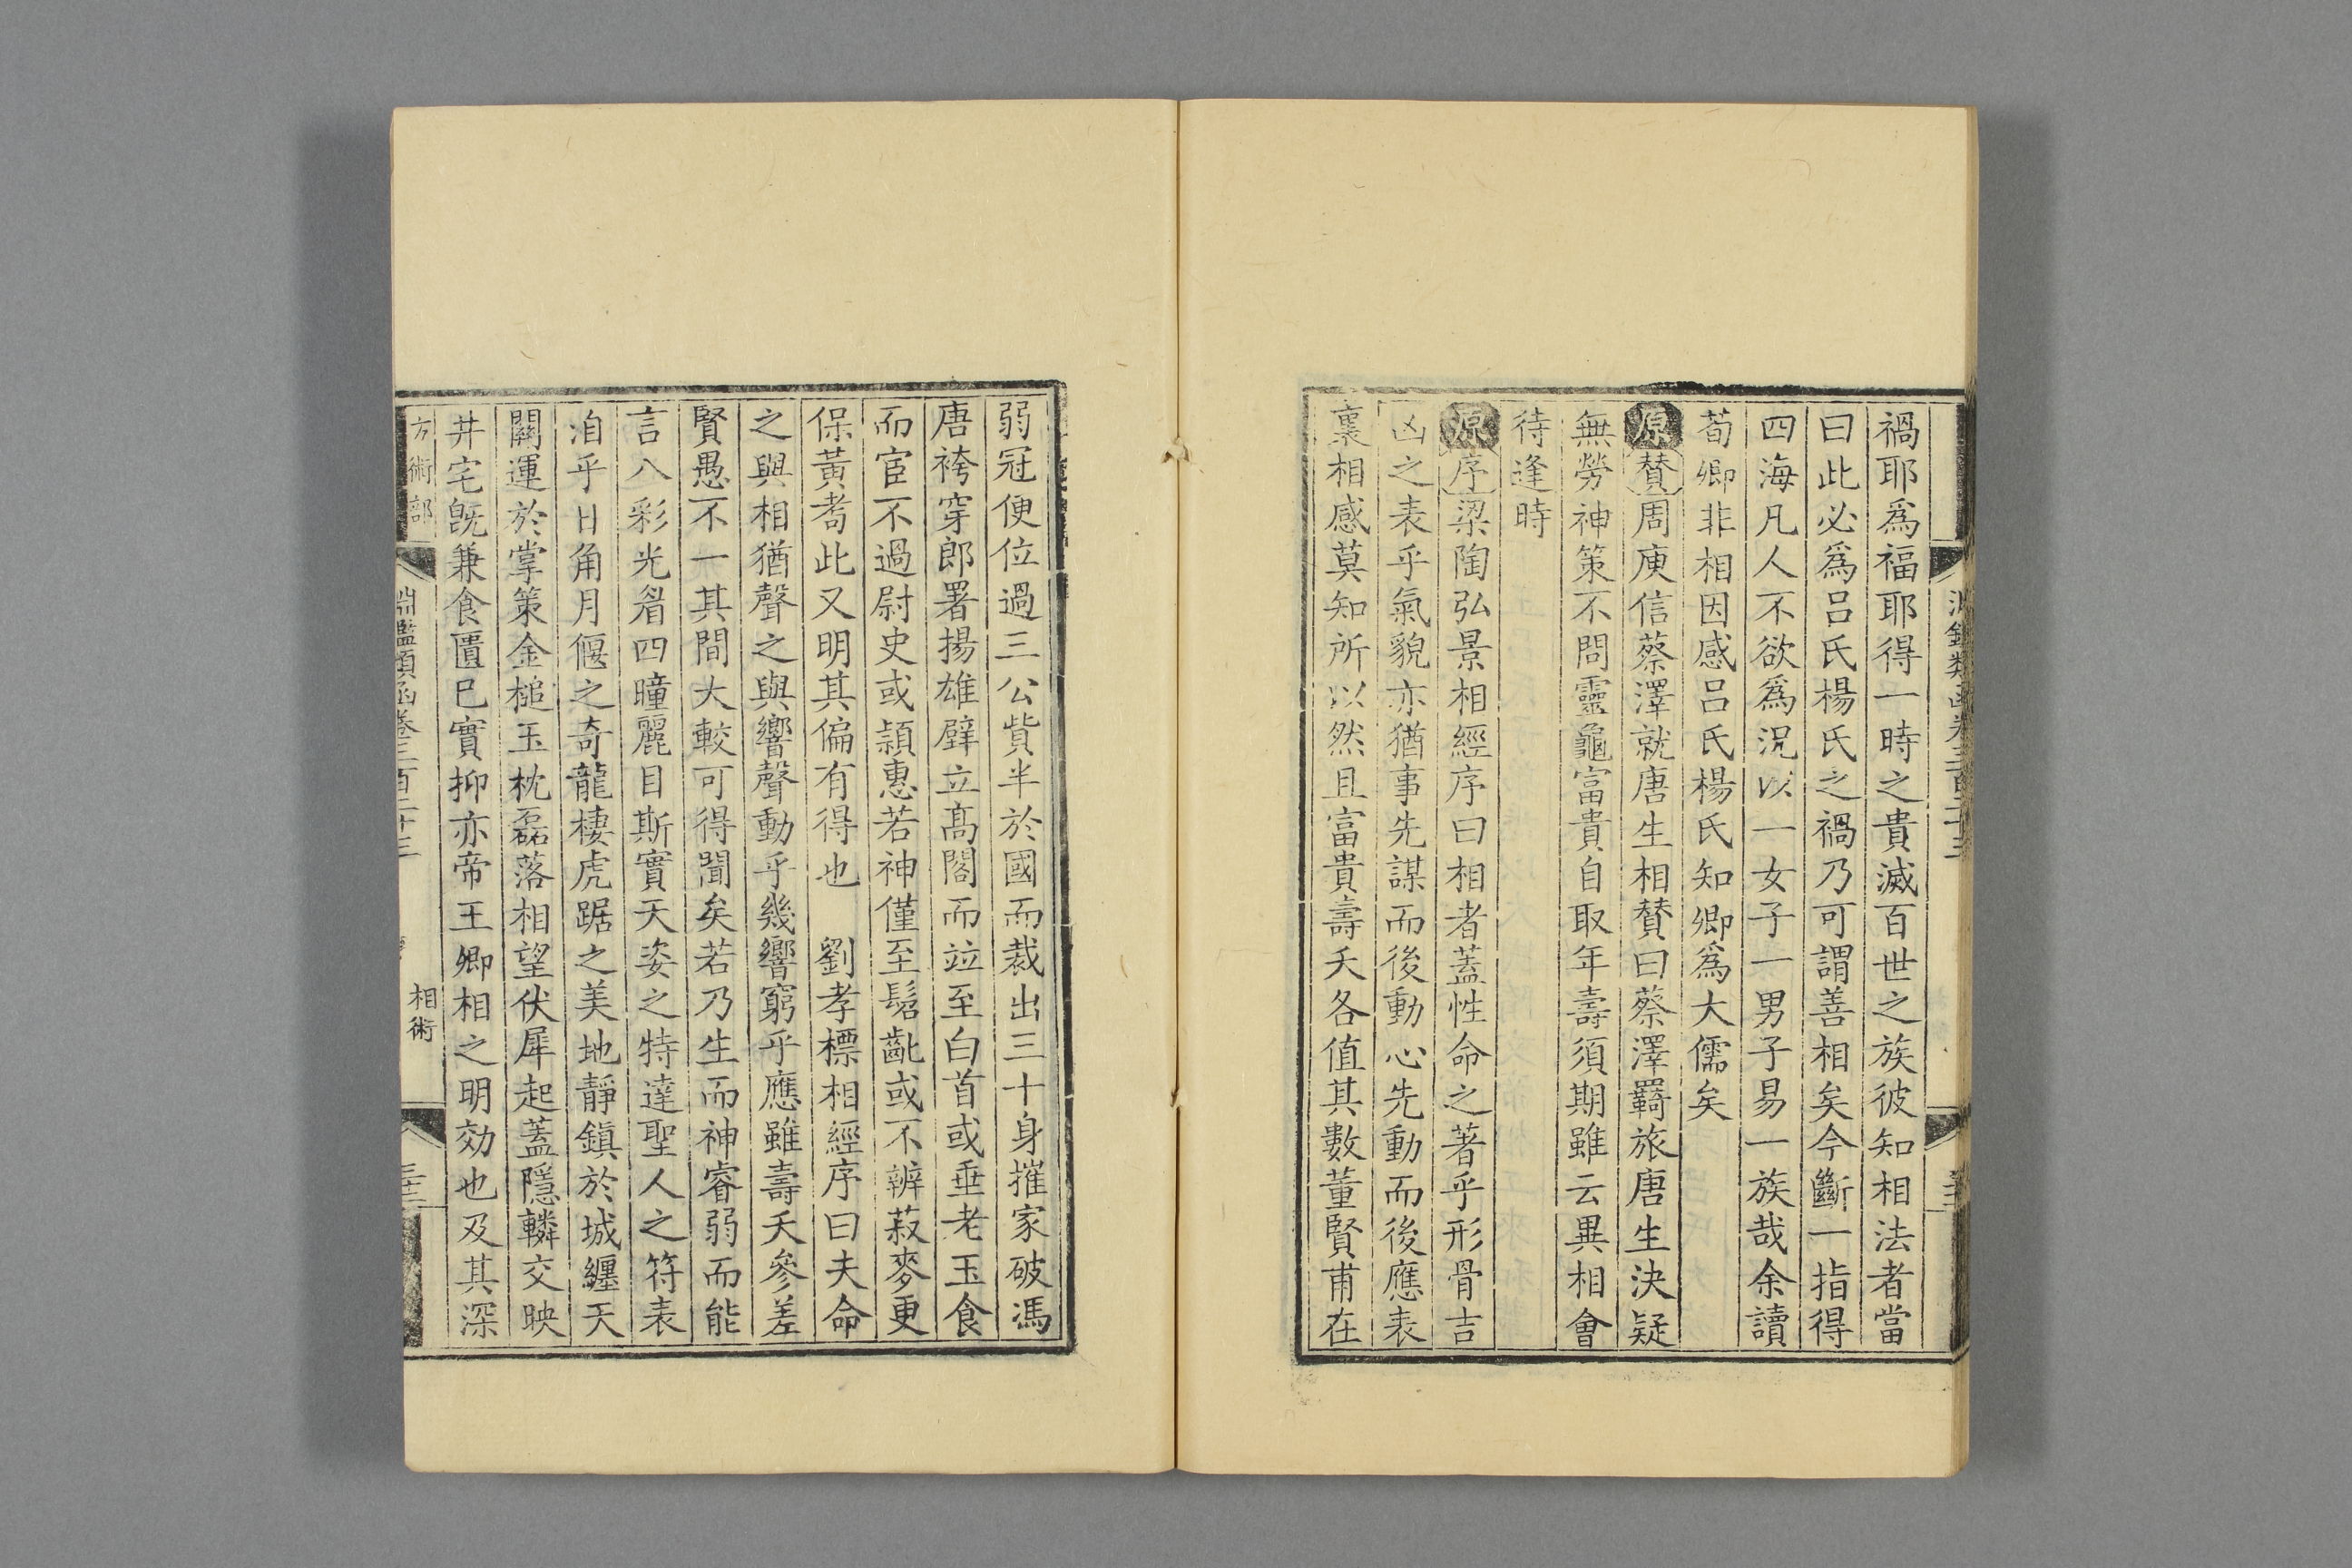 禍耶爲福耶得一時之貴滅百世之族彼知相法者當
曰此必爲呂氏楊氏之禍乃可謂善相矣今斷一指得
四海凡人不欲爲況以一女子一男子易一族哉余讀
荀卿非相因感呂氏楊氏知卿爲大儒矣
原賛周庾信蔡澤就唐生相賛曰蔡澤羇旅唐生決疑
無勞神策不問靈龜富貴自取年壽須期雖云異相會
待逢時
原序梁陶弘景相經序曰相者蓋性命之著乎形骨吉
凶之表乎氣貌亦猶事先謀而後動心先動而後應表
裏相感莫知所以然且富貴壽夭各值其數董賢甫在
弱冠便位過三公貲半於國而裁出三十身摧家破馮
唐袴穿郎署揚雄壁立髙閣而竝至白首或垂老玉食
而宦不過尉史或頴惠若神僅至髫齔或不辨菽麥更
保黃耇此又明其偏有得也　劉孝標相經序曰夫命
之與相猶聲之與響聲動乎幾響窮乎應雖壽夭參差
賢愚不一其間大較可得聞矣若乃生而神睿弱而能
言八彩光眉四瞳麗目斯實天姿之特達聖人之符表
洎乎日角月偃之奇龍棲虎踞之美地靜鎮於城纏天
關運於掌策金槌玉枕磊落相望伏犀起蓋隱轔交映
井宅旣兼食匱已實抑亦帝王卿相之明効也及其深
方術部
淵鑑類函卷三百二十三
相術
三十二